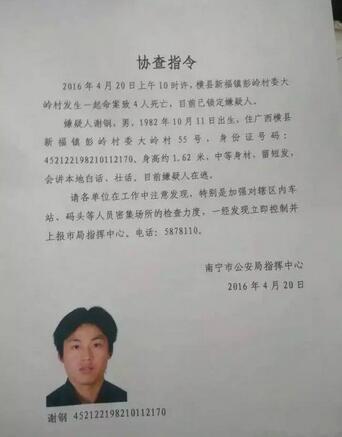 协查指令
2016 年 4 月 20 日上午 10 时许，横县新福镇彭岭村委大
岭村发生一起命案致 4 人死亡，目前已锁定嫌疑人。
嫌疑人谢钢，男，1982 年 10 月 11 日出生，住广西横县
新福镇彭岭村委大岭村 55 号，身份证号码：
452122198210112170、身高约 1.62 米、中等身材、留短发，
会讲本地白话、壮话。目前嫌疑人在逃。
请各单位在工作中注意发现，特别是加强对辖区内车
站、码头等人员密集场所的检查力度，一经发现立即控制并
上报市局指挥中心。电话：5878110。
南宁市公安局指挥中心
2016 年 4 月 20 日
谢钢 452122198210112170